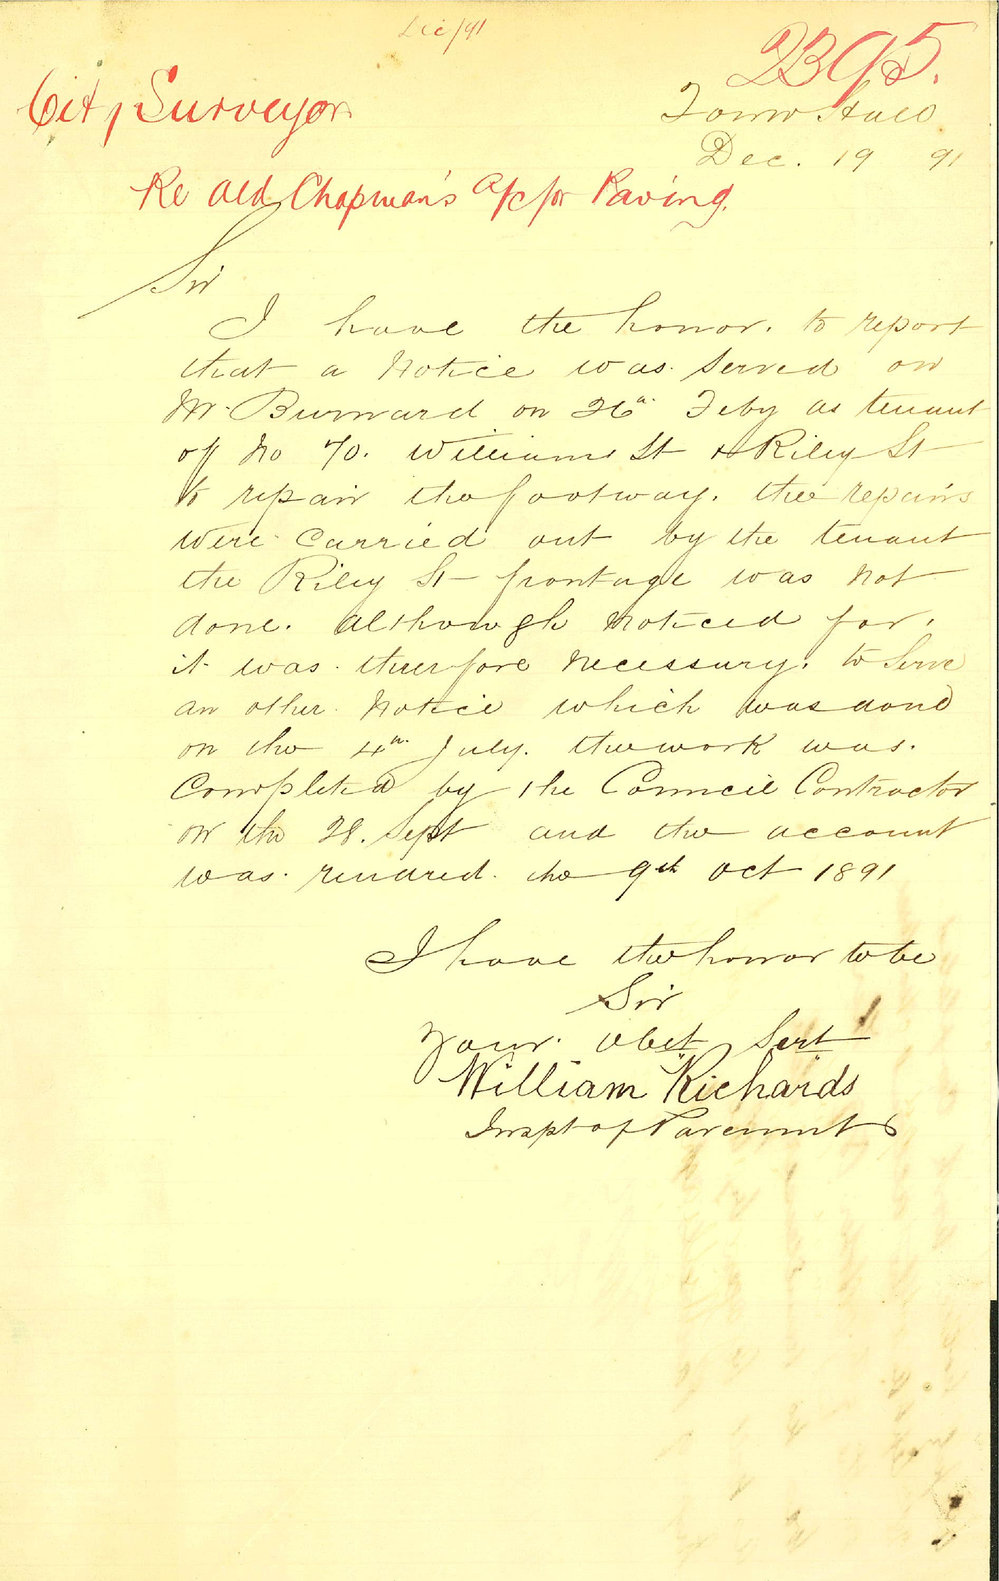 Dec/91
2395.
City Surveyor
Town Hall
Dec. 19 91
Re Ald Chapman's A/c for Paving.
Sir
I have the honor. to report
that a Notice was. Served on
Mr. Burnard on 26th Feby as tenant
of No 70. William St & Riley St
to repair the footway. the repairs
were carried out by the tenant
the Riley St frontage was not
done. although noticed for.
it was therefore necessary. to Serve
an other Notice which was done
on the 4th July. the work was.
Completed by the Council Contractor
on the 28. Sept and the account
was. rendred. the 9th Oct 1891
I have the honor to be
Sir
Your. Obet Sert
William Richards
Inspt of Pavements